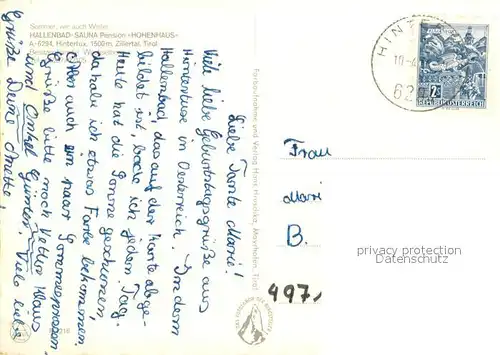 Sommer, wer auch Winter
HALLENBAD-SAUNA Pension «HOHENHAUS»
A-6294, Hintertux, 1500m, Zillertal, Tirol
Liebe Tante Marie!
Viele liebe Geburtstagsgrüße aus
Hintertux in Oesterreich. In dem
Hallenbad, das auf der Karte abge-
bildet ist, bade ich jeden Tag.
Heute hat die Sonne geschienen,
da habe ich etwas Farbe bekommen
Aber auch ein paar Sommersprossen
Grüße bitte noch Vetter Klaus
und Onkel Günter. Viele liebe
Grüße Deine Anette!
Farbaufnahme und Verlag Hans Hruschka, Mayrhofen, Tirol
HINTERTUX
REPUBLIK ÖSTERREICH
Frau
Marie
B.
497,-
privacy protection
Datenschutz